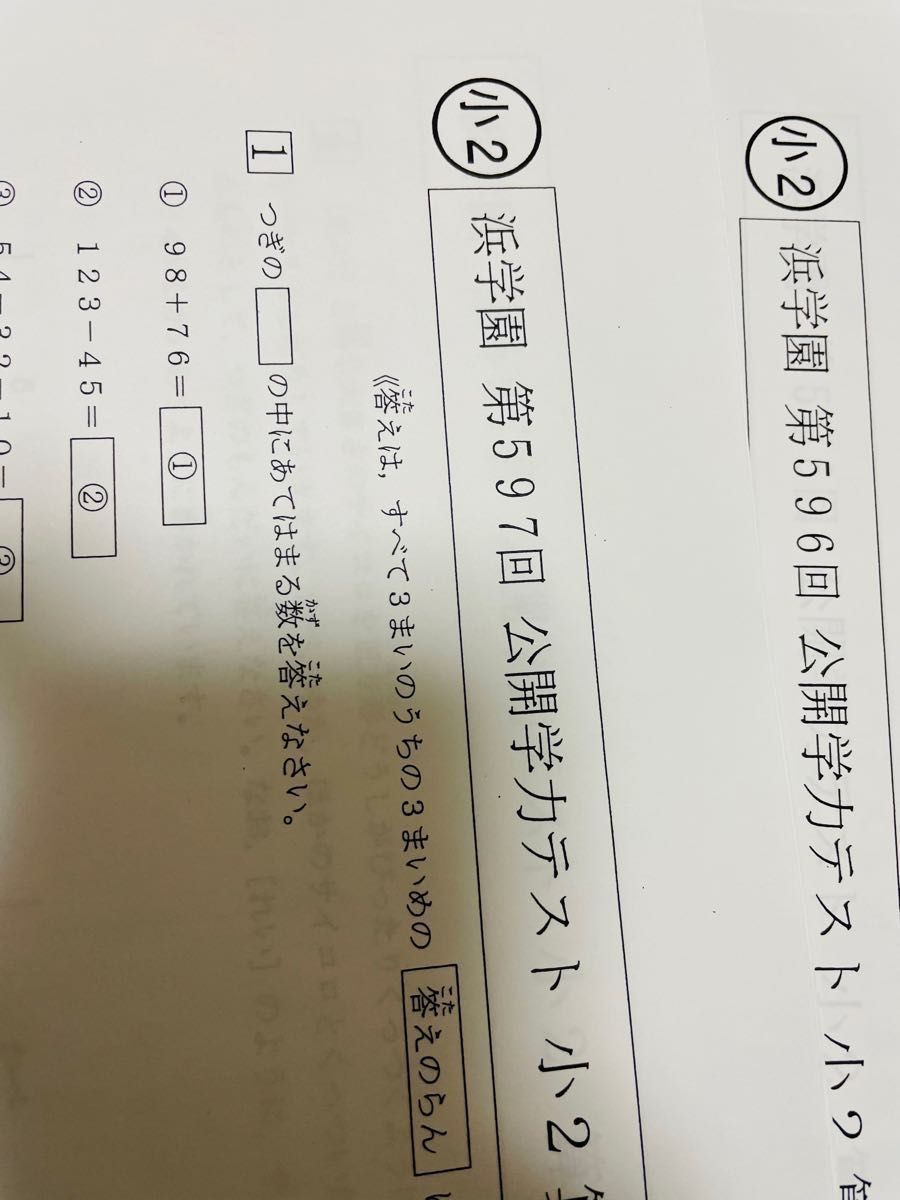 小2
浜学園 第596回 公開学力テスト 小2
小2
浜学園 第597回 公開学力テスト 小2
《答えは,すべて3まいのうちの3まいめの 答えのらん
1 つぎの□の中にあてはまる数を答えなさい。
① 98+76= ①
② 123-45= ②
③